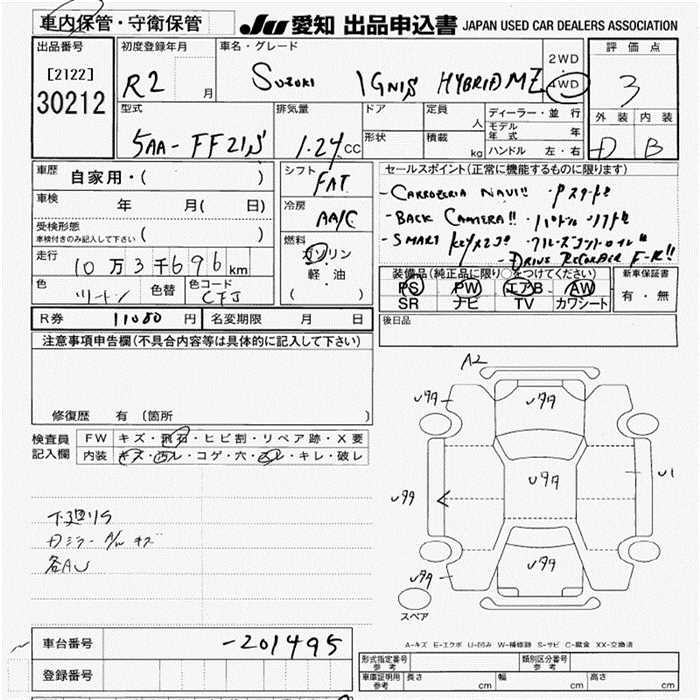 車内保管・守衛保管 JU 愛知 出品申込書 JAPAN USED CAR DEALERS ASSOCIATION
出品番号 初度登録年月 車名・グレード 2WD 評価点
[2122] R2 月 SUZUKI IGNIS HYBRID MZ 4WD 3
30212
型式 排気量 ドア 定員 人 ディーラー・並行 外装 内装
モデル年式 年
5AA-FF21S 1.24 CC 形状 積載 kg ハンドル 左・右 D B
車歴 自家用・( ) シフト FAT セールスポイント(正常に機能するものに限ります)
車検 年 月( 日) 冷房 AA/C -CARROZERIA NAVI!! ・Pスタート
受検形態 ( ) -BACK CAMERA!! ・パドルシフト
車検付きのみ記入して下さい
燃料 ガソリン -SMART KEYx2コ ・クルーズコントロール
走行 10万3千696km 軽・油 -DRIVE RECORDER F-R!!
色 色替 色コード ( ) 装備品(純正品に限り○をつけてください) 新車保証書
ツートン CFJ PS PW エアB AW 有・無
SR ナビ TV カワシート
R券 11080円 名変期限 月 日 後日品
注意事項申告欄(不具合内容等は具体的に記入して下さい)
修復歴 有(箇所 )
検査員 FW キズ・飛石・ヒビ割・リペア跡・X要
記入欄 内装 キズ・汚レ・コゲ・穴・スレ・キレ・破レ
A2
U99 U99
U99 U99 U1
U99
U99
スペア
下廻りS
Dミラー A/W キズ
各AU
A-キズ E-エクボ U-凹み W-補修跡 S-サビ C-腐食 XX-交換済
車台番号 -201495
登録番号
形式指定番号 参考 類別区分番号 参考
車庫証明用 参考 長さ cm 幅 cm 高さ cm